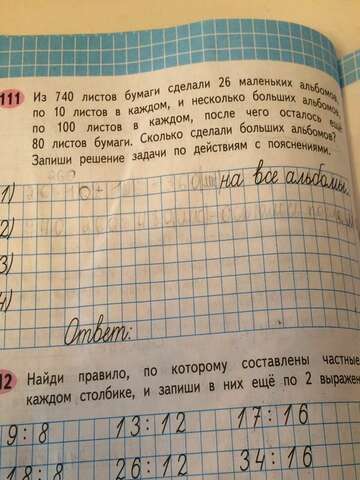 111 Из 740 листов бумаги сделали 26 маленьких альбомов,
по 10 листов в каждом, и несколько больших альбомов,
по 100 листов в каждом, после чего осталось ещё
80 листов бумаги. Сколько сделали больших альбомов?
Запиши решение задачи по действиям с пояснениями.
1) на все альбомы.
2)
3)
4)
Ответ:
12 Найди правило, по которому составлены частные
каждом столбике, и запиши в них ещё по 2 выражен
9:8 13:12 17:16
18:8 26:12 34:16